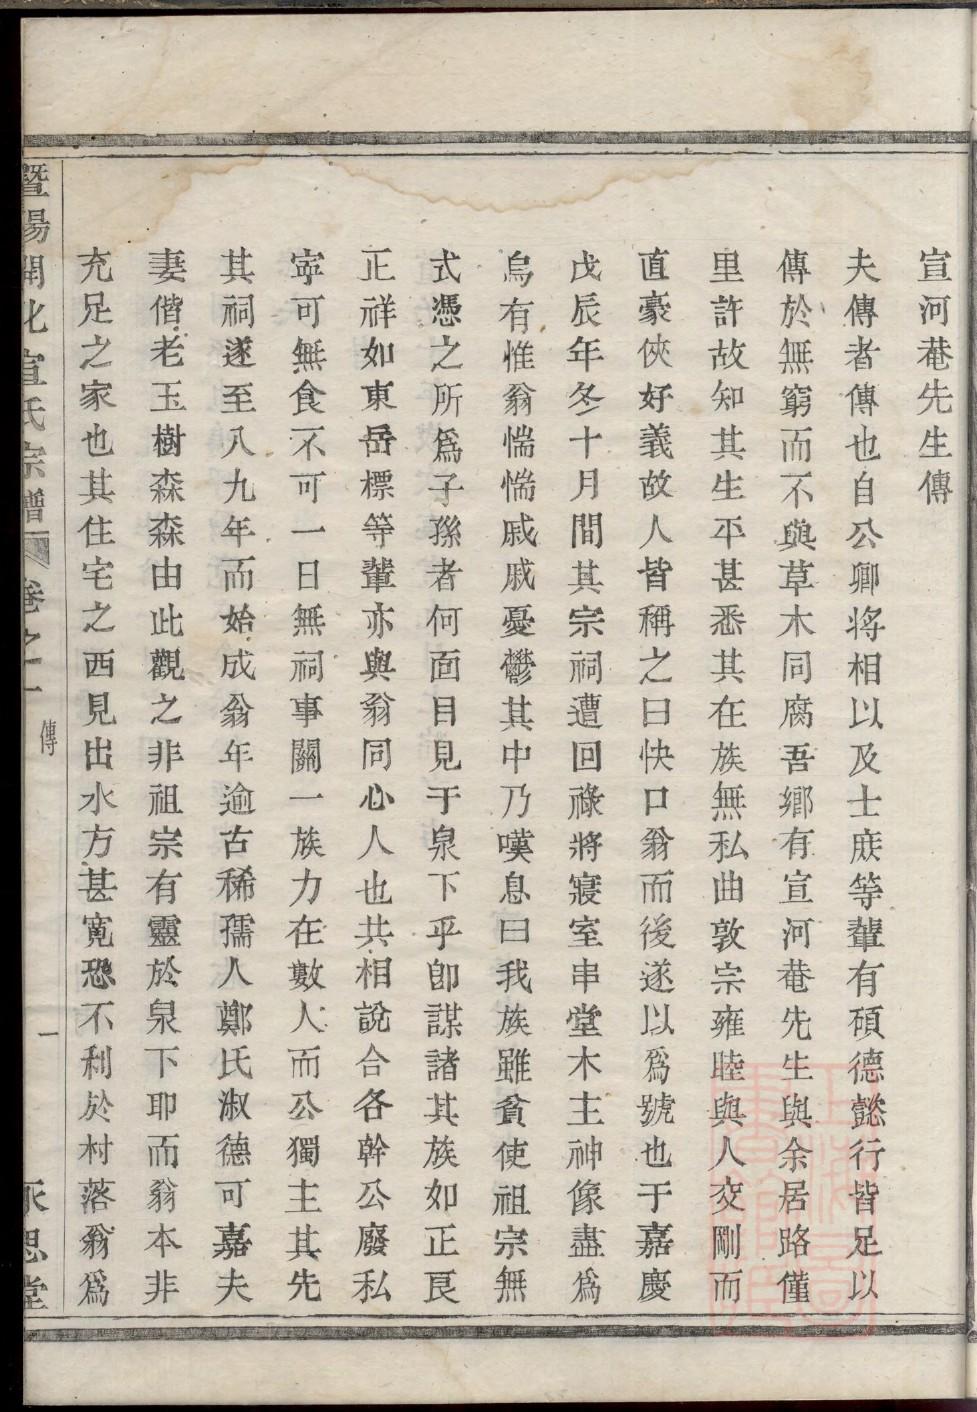 宣河菴先生傳
夫傳者傳也自公卿將相以及士庶等輩有碩德懿行皆足以
傳於無窮而不與草木同腐吾鄉有宣河菴先生與余居路僅
里許故知其生平甚悉其在族無私曲敦宗雍睦與人交剛而
直豪俠好義故人皆稱之曰快口翁而後遂以爲號也于嘉慶
戊辰年冬十月間其宗祠遭回祿將寢室串堂木主神像盡爲
烏有惟翁惴惴戚戚憂鬱其中乃嘆息曰我族雖貧使祖宗無
式憑之所爲子孫者何面目見于泉下乎卽謀諸其族如正艮
正祥如東岳標等輩亦與翁同心人也共相說合各幹公廢私
寧可無食不可一日無祠事關一族力在數人而公獨主其先
其祠遂至八九年而始成翁年逾古稀孺人鄭氏淑德可嘉夫
妻偕老玉樹森森由此觀之非祖宗有靈於泉下耶而翁本非
充足之家也其住宅之西見出水方甚寬恐不利於村落翁爲
暨陽開化宣氏宗譜 卷之一 傳 一 承思堂